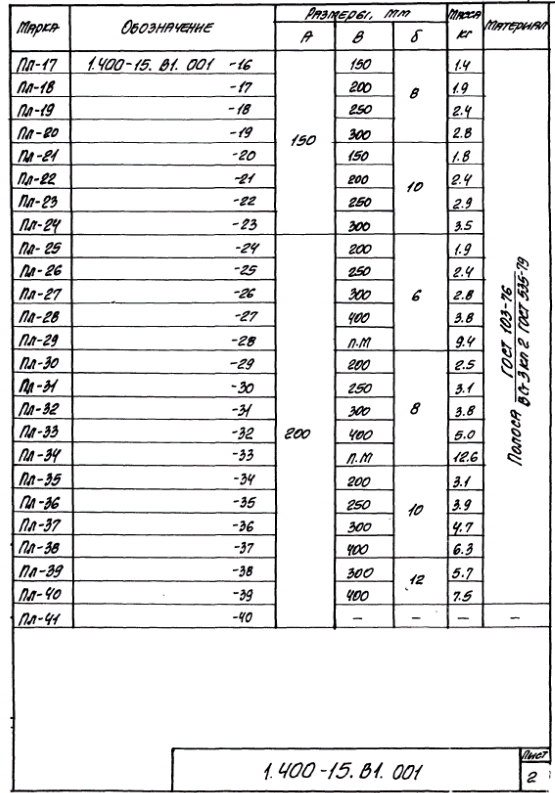 Марка Обозначение Размеры, мм Масса кг Материал
А В б
Пл-17 1.400-15. В1. 001 -16 150 150 8 1.4
Пл-18 -17 200 1.9
Пл-19 -18 250 2.4
Пл-20 -19 300 2.8
Пл-21 -20 150 10 1.8
Пл-22 -21 200 2.4
Пл-23 -22 250 2.9
Пл-24 -23 300 3.5
Пл-25 -24 200 200 6 1.9
Пл-26 -25 250 2.4
Пл-27 -26 300 2.8
Пл-28 -27 400 3.8
Пл-29 -28 п.м 9.4
Пл-30 -29 200 8 2.5
Пл-31 -30 250 3.1
Пл-32 -31 300 3.8
Пл-33 -32 400 5.0
Пл-34 -33 п.м 12.6
Пл-35 -34 200 10 3.1
Пл-36 -35 250 3.9
Пл-37 -36 300 4.7
Пл-38 -37 400 6.3
Пл-39 -38 300 12 5.7
Пл-40 -39 400 7.5
Пл-41 -40 – – – –
Полоса ГОСТ 103-76
ВСт3кп2 ГОСТ 535-79
1.400-15. В1. 001
Лист
2